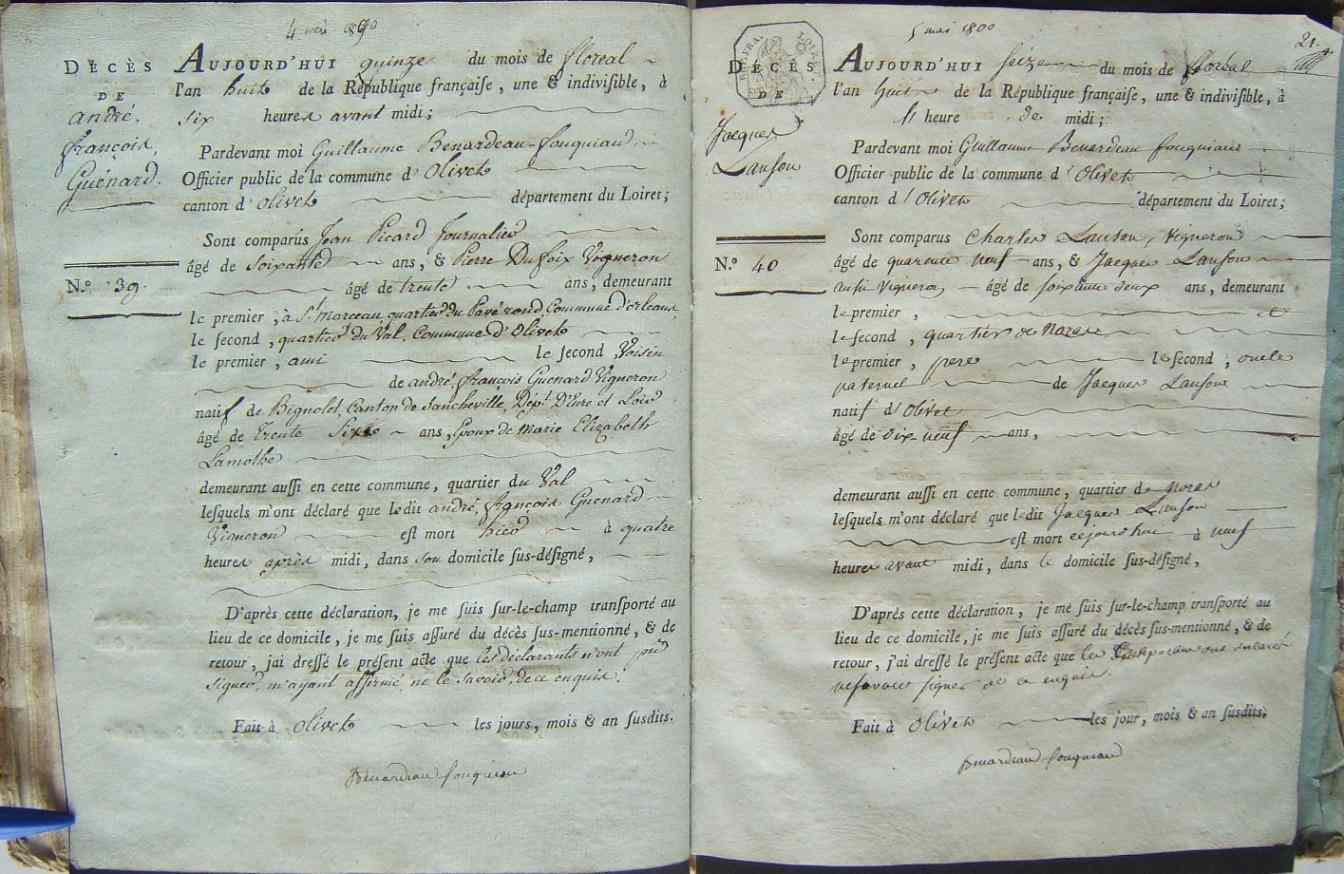 4 mai 1800
DÉCÈS
DE
andré.
françois.
Guénard.
N.º 39.
AUJOURD'HUI quinze du mois de floreal
l'an huit de la République française, une & indivisible, à
six heures avant midi;
Pardevant moi Guillaume Benardeau-fouquiau
Officier public de la commune d'Olivet
canton d'olivet département du Loiret;
Sont comparus Jean Picard Journalier
âgé de soixante ans, & Pierre Dufoix Vigneron
âgé de trente ans, demeurant
le premier, à St. marceau, quartier du Pavé rond, Commune d'orleans,
le second, quartier du Val, Commune d'Olivet
le premier, ami le second, Voisin
de andré, françois Guénard Vigneron
natif de Bignolet, Canton de Sancheville, Dépt. D'Eure et Loir
âgé de trente Six ans, Epoux de Marie Elizabeth
Lamothe
demeurant aussi en cette commune, quartier du Val
lesquels m'ont déclaré que ledit andré, françois Guenard
Vigneron est mort hier à quatre
heures après midi, dans son domicile sus-désigné,
D'après cette déclaration, je me suis sur-le-champ transporté au
lieu de ce domicile, je me suis assuré du décès sus-mentionné, & de
retour, j'ai dressé le présent acte que les déclarants n'ont pu
signer, m'ayant affirmé ne le savoir, de ce enquis.
Fait à Olivet les jours, mois & an susdits.
Benardeau fouquiau
5 mai 1800
21.
DÉCÈS
DE
Jacques
Lanson
N.º 40
AUJOURD'HUI seize du mois de floreal
l'an huit de la République française, une & indivisible, à
heure de midi;
Pardevant moi Guillaume Benardeau fouquiau
Officier public de la commune d'Olivet
canton d'Olivet département du Loiret;
Sont comparus Charles Lanson, Vigneron
âgé de quarante neuf ans, & Jacques Lanson
aussi vigneron âgé de soixante deux ans, demeurant
le premier, et
le second, quartier de
le premier, pere le second, oncle
paternel de Jacques Lanson
natif d'Olivet
âgé de dix neuf ans,
demeurant aussi en cette commune, quartier de
lesquels m'ont déclaré que ledit Jacques Lanson
est mort cejourd'hui à neuf
heures avant midi, dans le domicile sus-désigné,
D'après cette déclaration, je me suis sur-le-champ transporté au
lieu de ce domicile, je me suis assuré du décès sus-mentionné, & de
retour, j'ai dressé le présent acte que les comparans ont déclaré
ne savoir signer de ce enquis.
Fait à Olivet les jour, mois & an susdits.
Benardeau fouquiau